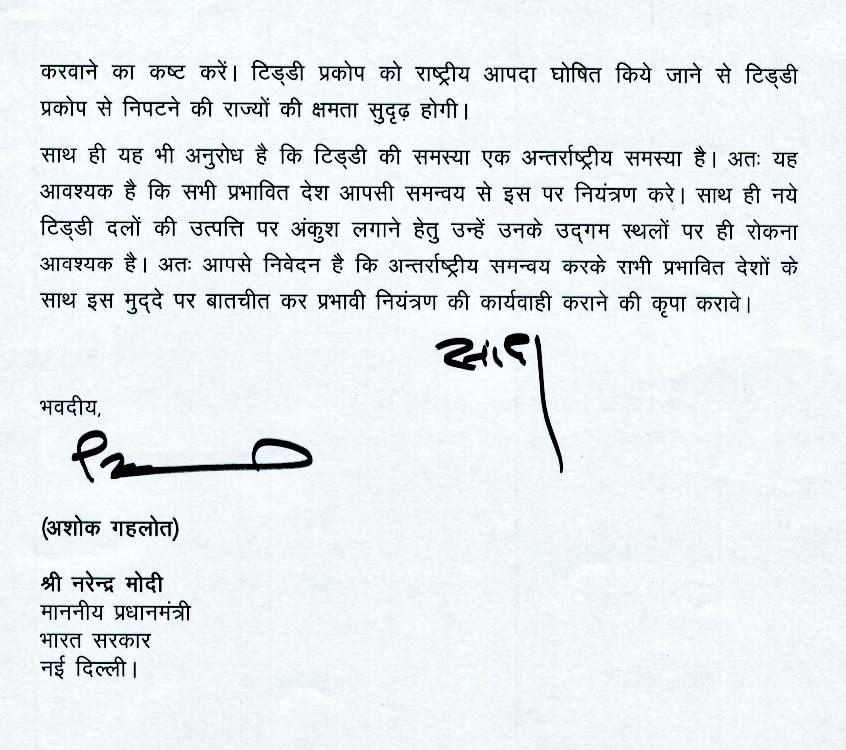 करवाने का कष्ट करें। टिड्डी प्रकोप को राष्ट्रीय आपदा घोषित किये जाने से टिड्डी
प्रकोप से निपटने की राज्यों की क्षमता सुदृढ़ होगी।
साथ ही यह भी अनुरोध है कि टिड्डी की समस्या एक अन्तर्राष्ट्रीय समस्या है। अतः यह
आवश्यक है कि सभी प्रभावित देश आपसी समन्वय से इस पर नियंत्रण करे। साथ ही नये
टिड्डी दलों की उत्पत्ति पर अंकुश लगाने हेतु उन्हें उनके उद्गम स्थलों पर ही रोकना
आवश्यक है। अतः आपसे निवेदन है कि अन्तर्राष्ट्रीय समन्वय करके राभी प्रभावित देशों के
साथ इस मुद्दे पर बातचीत कर प्रभावी नियंत्रण की कार्यवाही कराने की कृपा करावे।
सादर
भवदीय,
(अशोक गहलोत)
श्री नरेन्द्र मोदी
माननीय प्रधानमंत्री
भारत सरकार
नई दिल्ली।